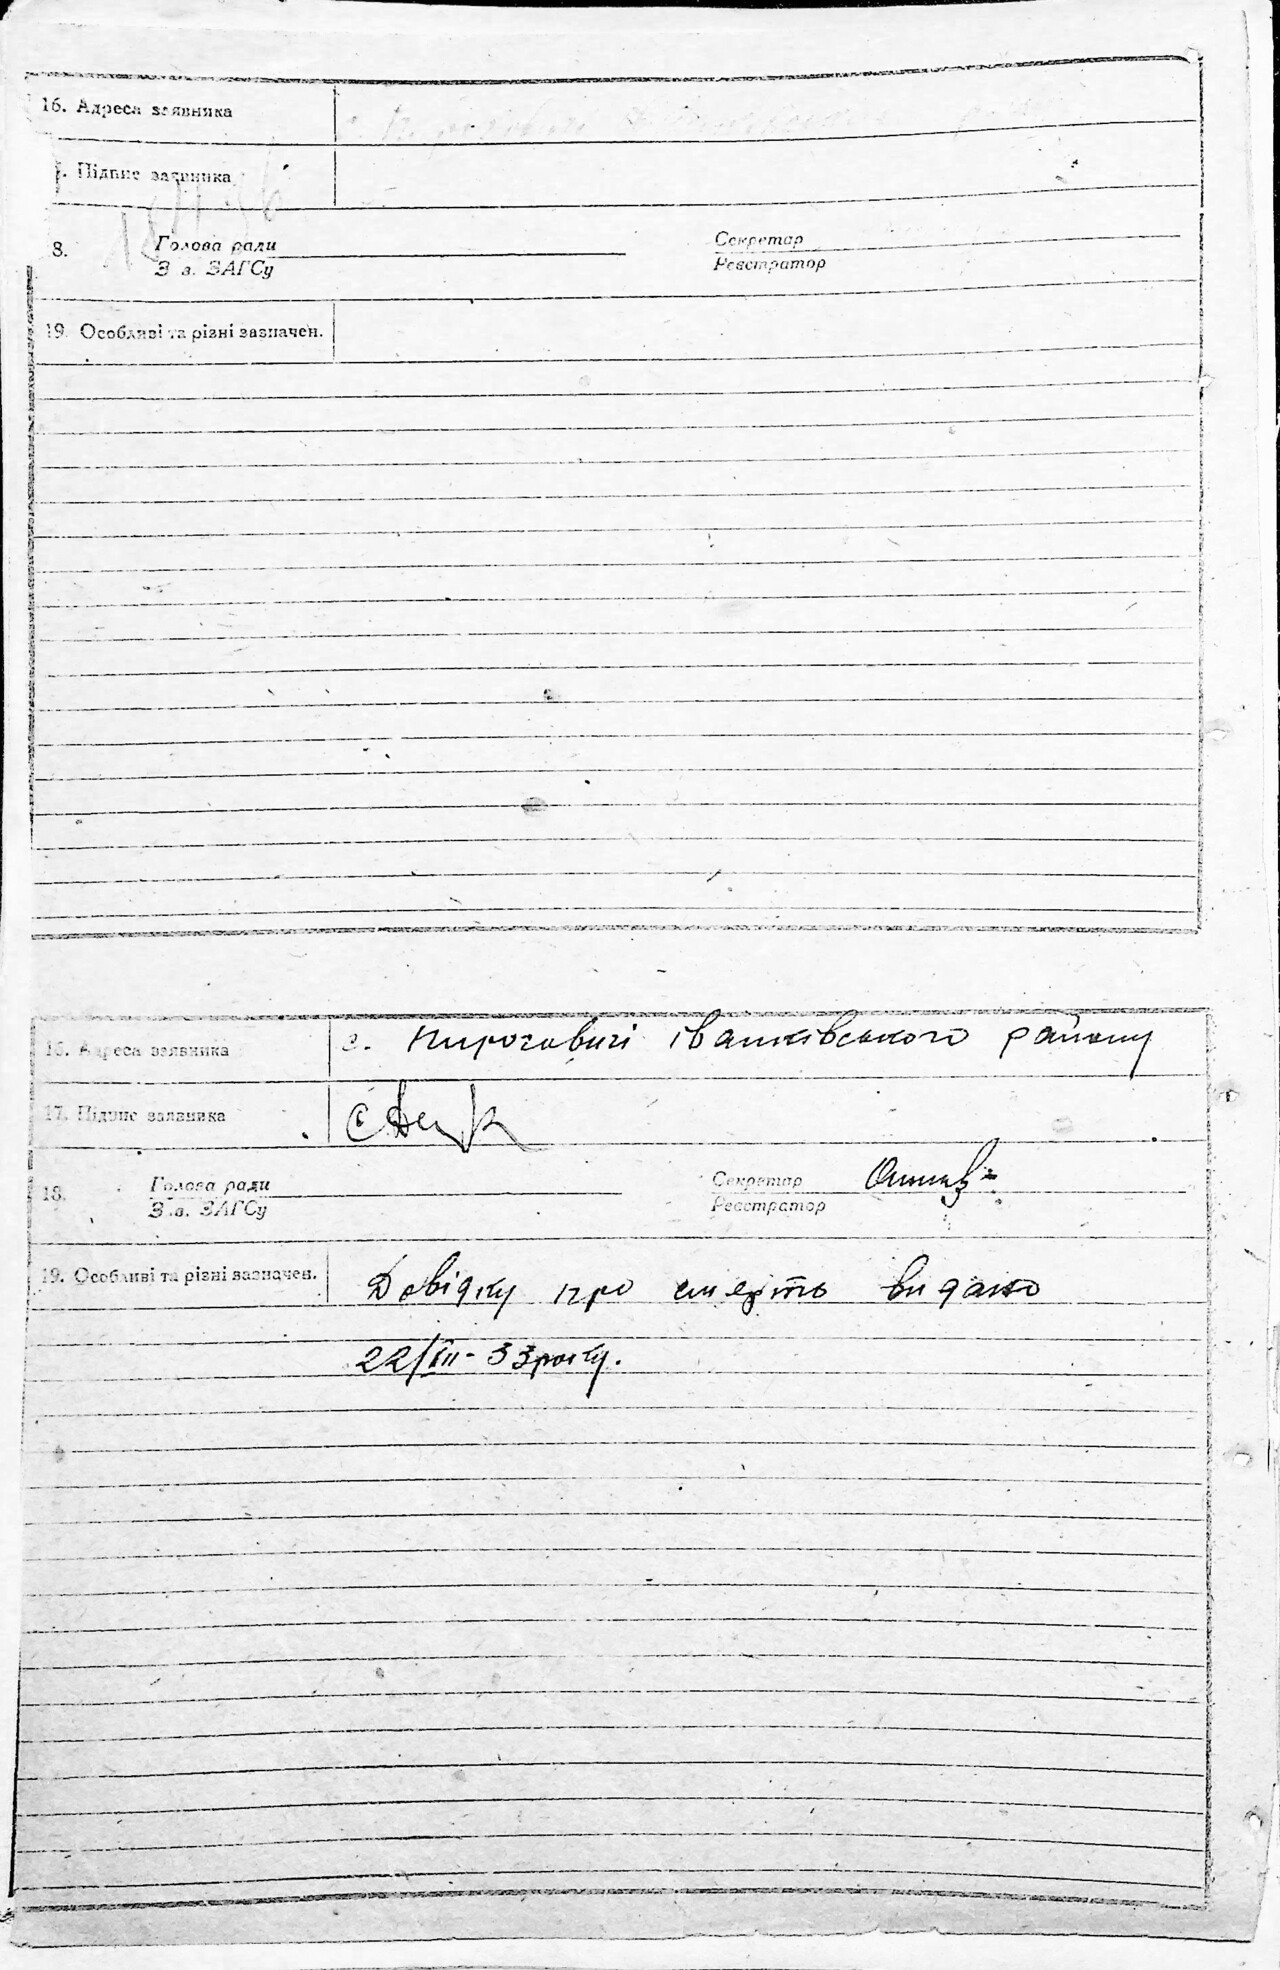 16. Адреса заявника
Підпис заявника
8. Голова ради Секретар
З в. ЗАГСу Реєстратор
19. Особливі та різні зазначен.
16. Адреса заявника с. Пироговичі Іванківського району
17. Підпис заявника
18. Голова ради Секретар
З.в. ЗАГСу Реєстратор
19. Особливі та різні зазначен. Довідку про смерть видано
22/III- 33 року.